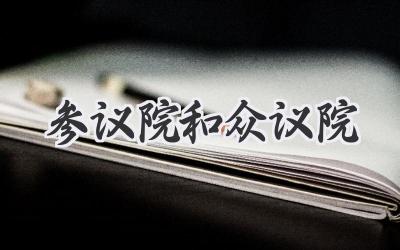 参议院和众议院